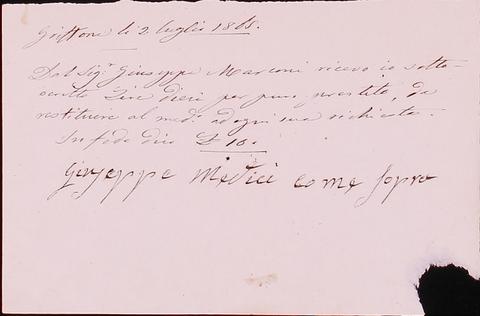 Griffone li 2. luglio 1865.
Dal Sig.r Giuseppe Marconi ricevo io sotto-
scritto Lire dieci per puro prestito, da
restituire al med.o ad ogni sua richiesta.
In fede dico £ 10.
Giuseppe Medici come sopra